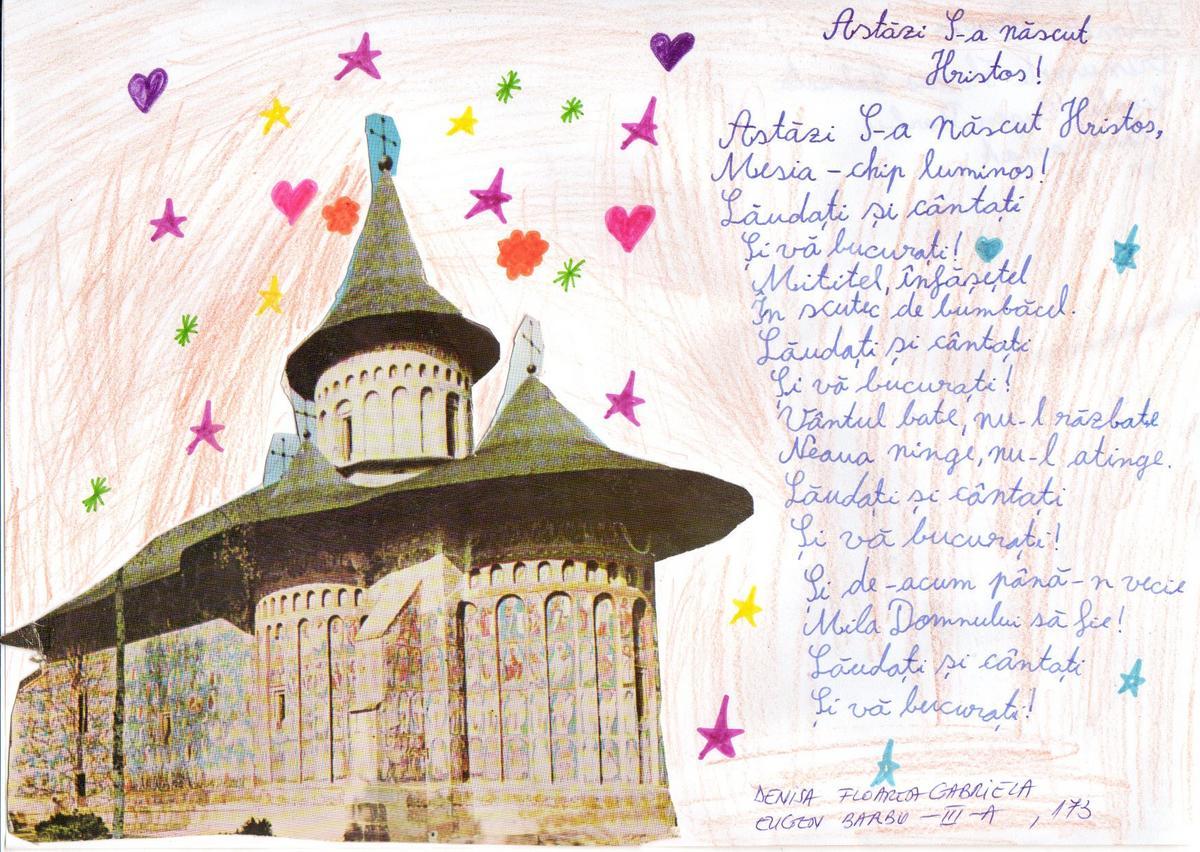 Astăzi S-a născut
Hristos!
Astăzi S-a născut Hristos,
Mesia - chip luminos!
Lăudați și cântați
Și vă bucurați!
Mititel, înfășețel
În scutec de bumbăcel.
Lăudați și cântați
Și vă bucurați!
Vântul bate, nu-l răzbate
Neaua ninge, nu-l atinge.
Lăudați și cântați
Și vă bucurați!
Și de-acum până-n vecie
Mila Domnului să fie!
Lăudați și cântați
Și vă bucurați!
DENISA FLOAREA GABRIELA
EUGEN BARBU - III - A , 173